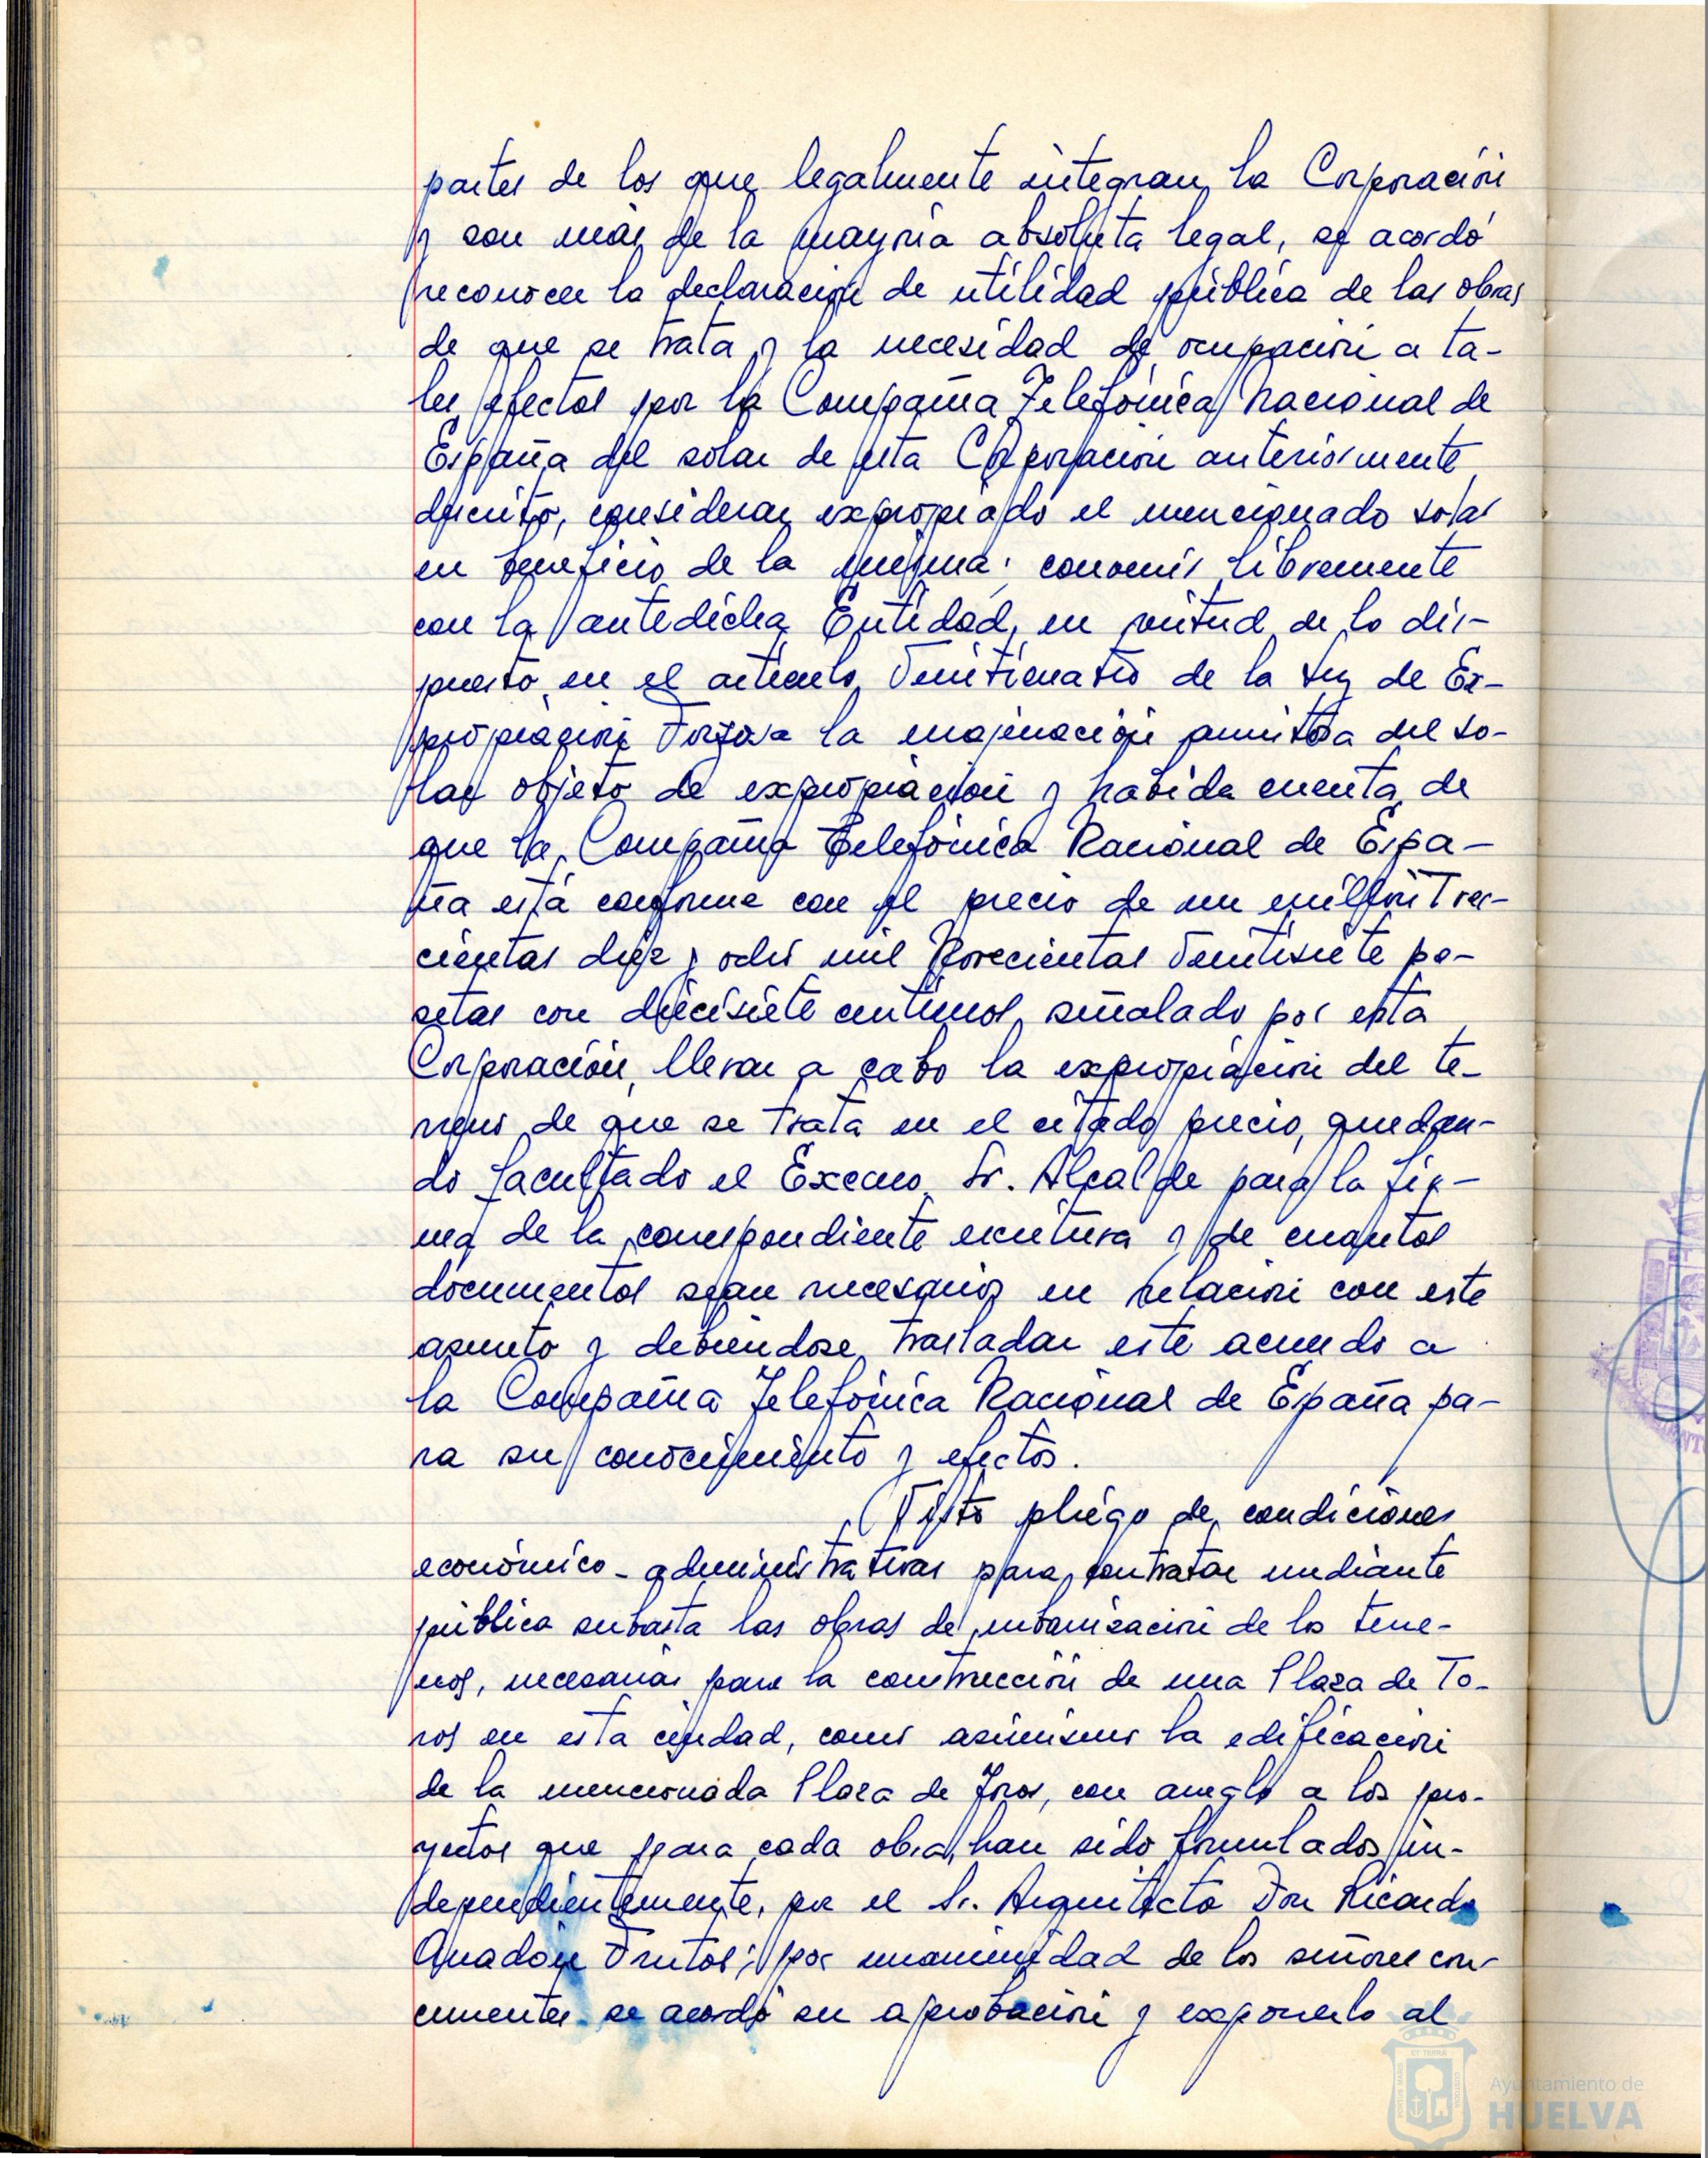 partes de los que legalmente integran la Corporación
y son más de la mayoría absoluta legal, se acordó
reconocer la declaración de utilidad pública de las obras
de que se trata y la necesidad de ocupación a ta-
les efectos por la Compañía Telefónica Nacional de
España del solar de esta Corporación anteriormente
descrito, considerar expropiado el mencionado solar
en beneficio de la misma; convenir libremente
con la antedicha Entidad, en virtud de lo dis-
puesto en el artículo Veinticuatro de la Ley de Ex-
propiación Forzosa la enajenación amistosa del so-
lar objeto de expropiación y habida cuenta de
que la Compañía Telefónica Nacional de Espa-
ña está conforme con el precio de un millón Tres-
cientas diez y ocho mil Novecientas Veintisiete pe-
setas con diecisiete céntimos, señalado por esta
Corporación, llevar a cabo la expropiación del te-
rreno de que se trata en el citado precio, quedan-
do facultado el Excmo. Sr. Alcalde para la fir-
ma de la correspondiente escritura y de cuantos
documentos sean necesarios en relación con este
asunto y debiéndose trasladar este acuerdo a
la Compañía Telefónica Nacional de España pa-
ra su conocimiento y efectos.
Visto pliego de condiciones
económico-administrativas para contratar mediante
pública subasta las obras de urbanización de los terre-
nos, necesarias para la construcción de una Plaza de To-
ros en esta ciudad, como asimismo la edificación
de la mencionada Plaza de Toros, con arreglo a los pro-
yectos que para cada obra, han sido formulados in-
dependientemente, por el Sr. Arquitecto Don Ricardo
Anadón Frutos; por unanimidad de los señores con-
currentes se acordó su aprobación y exponerlo al
Ayuntamiento de
HUELVA